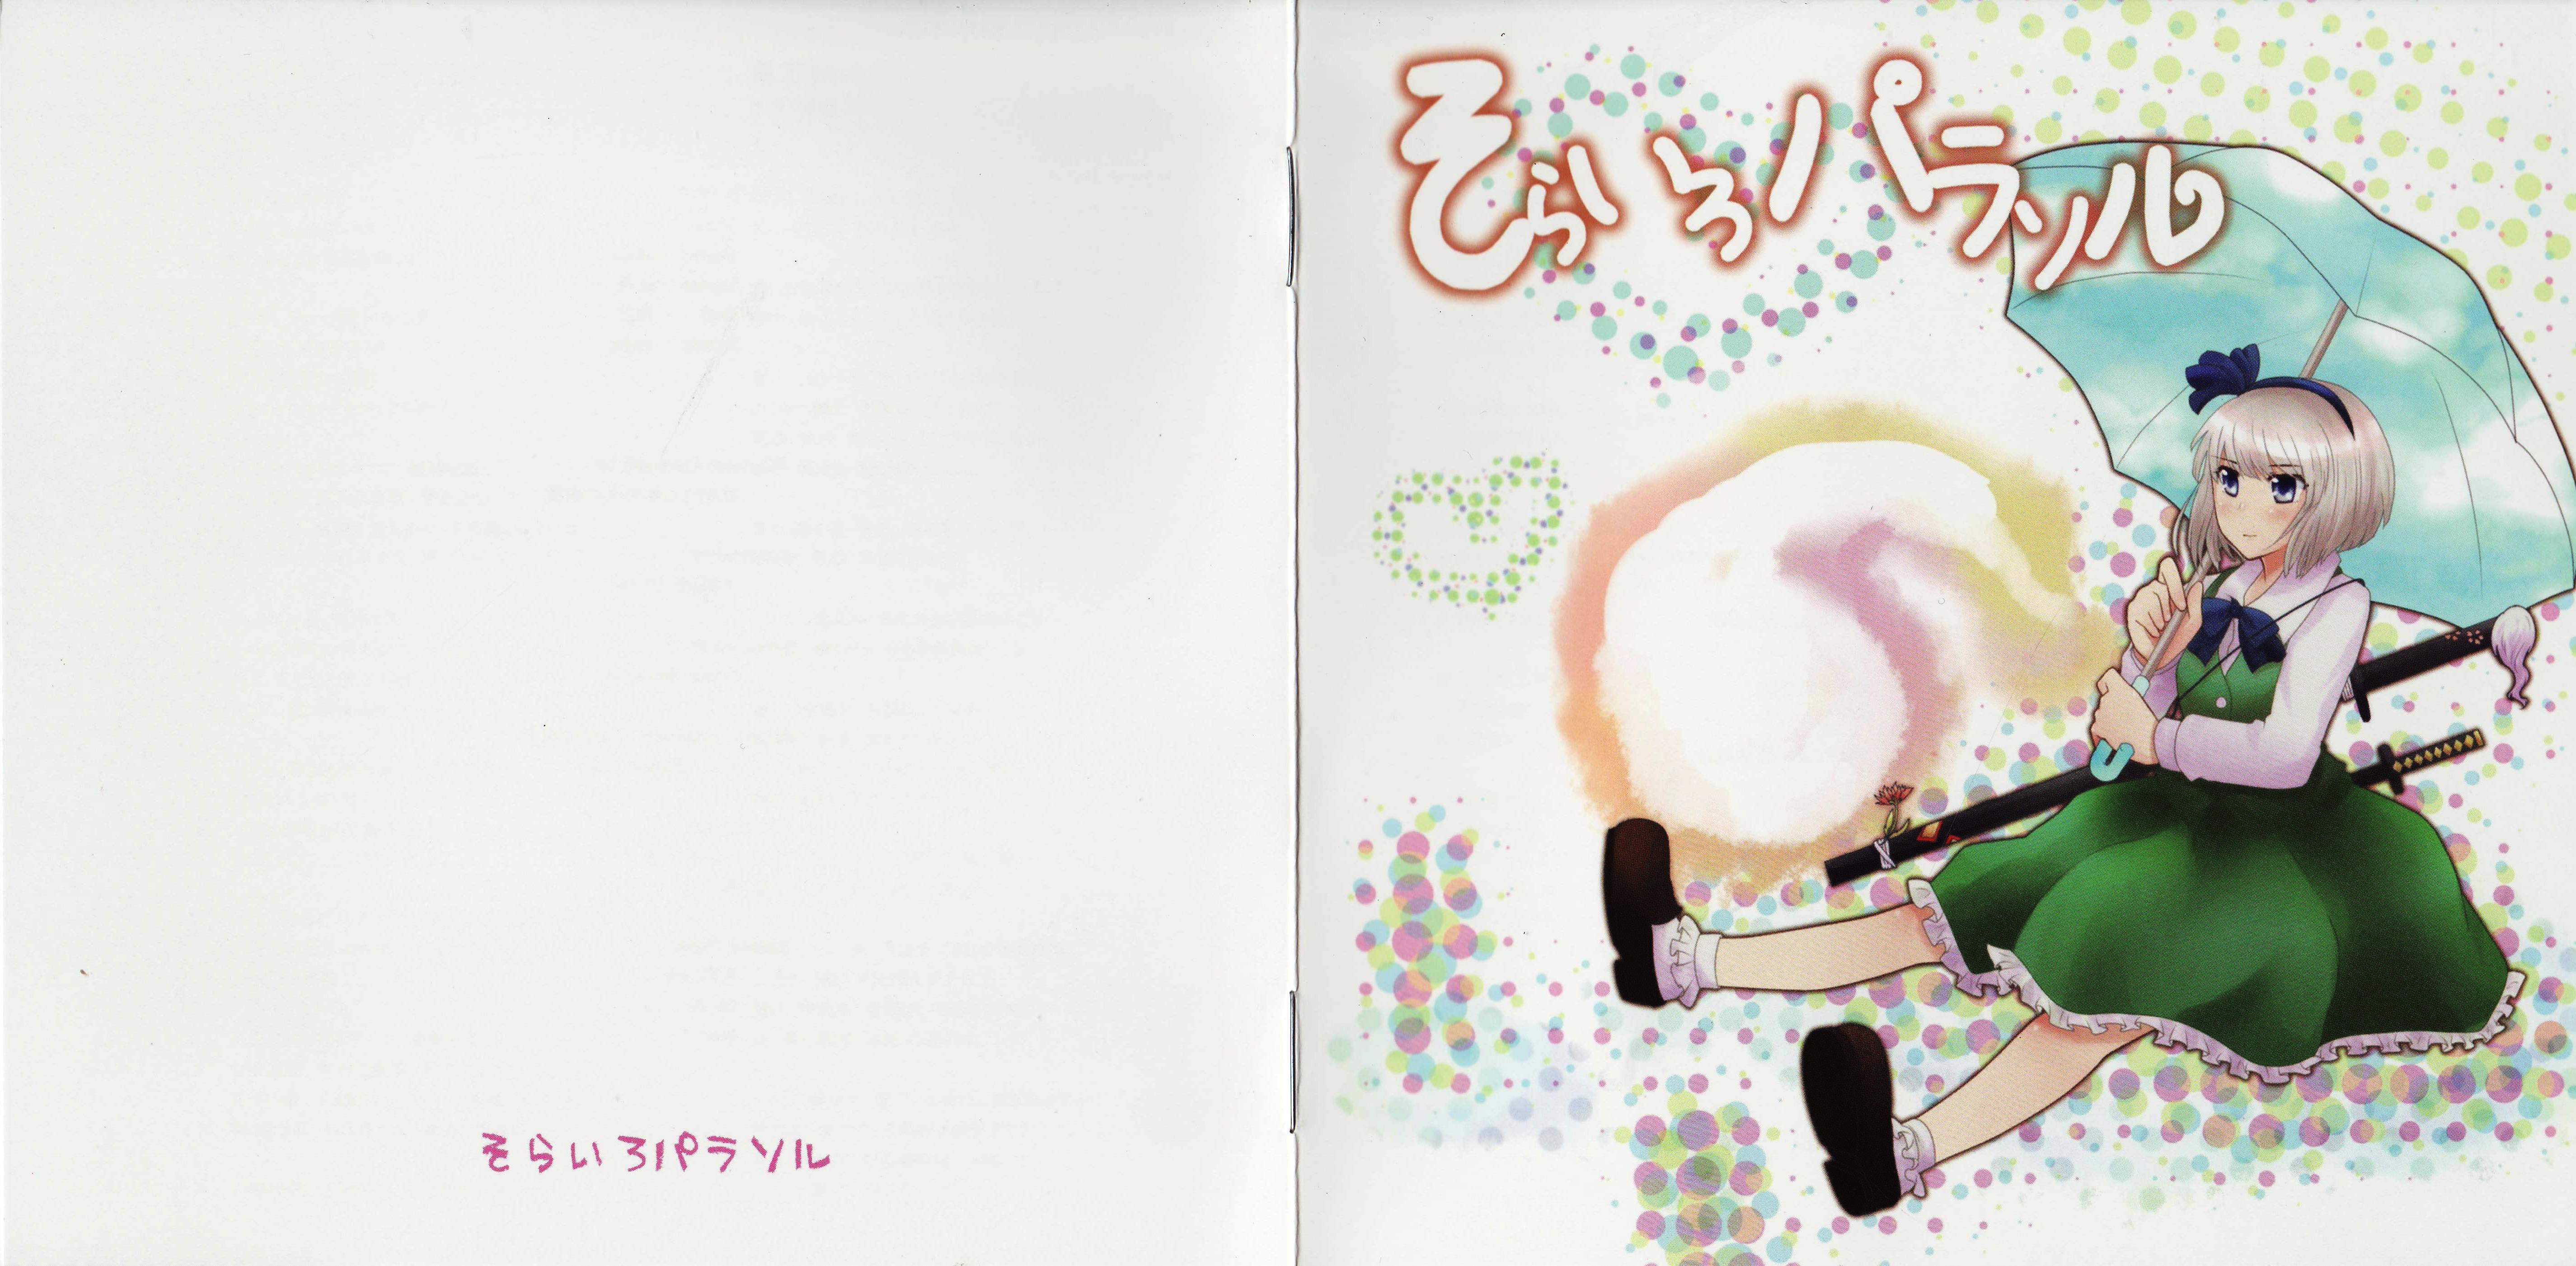 そらいろパラソル
そらいろパラソル